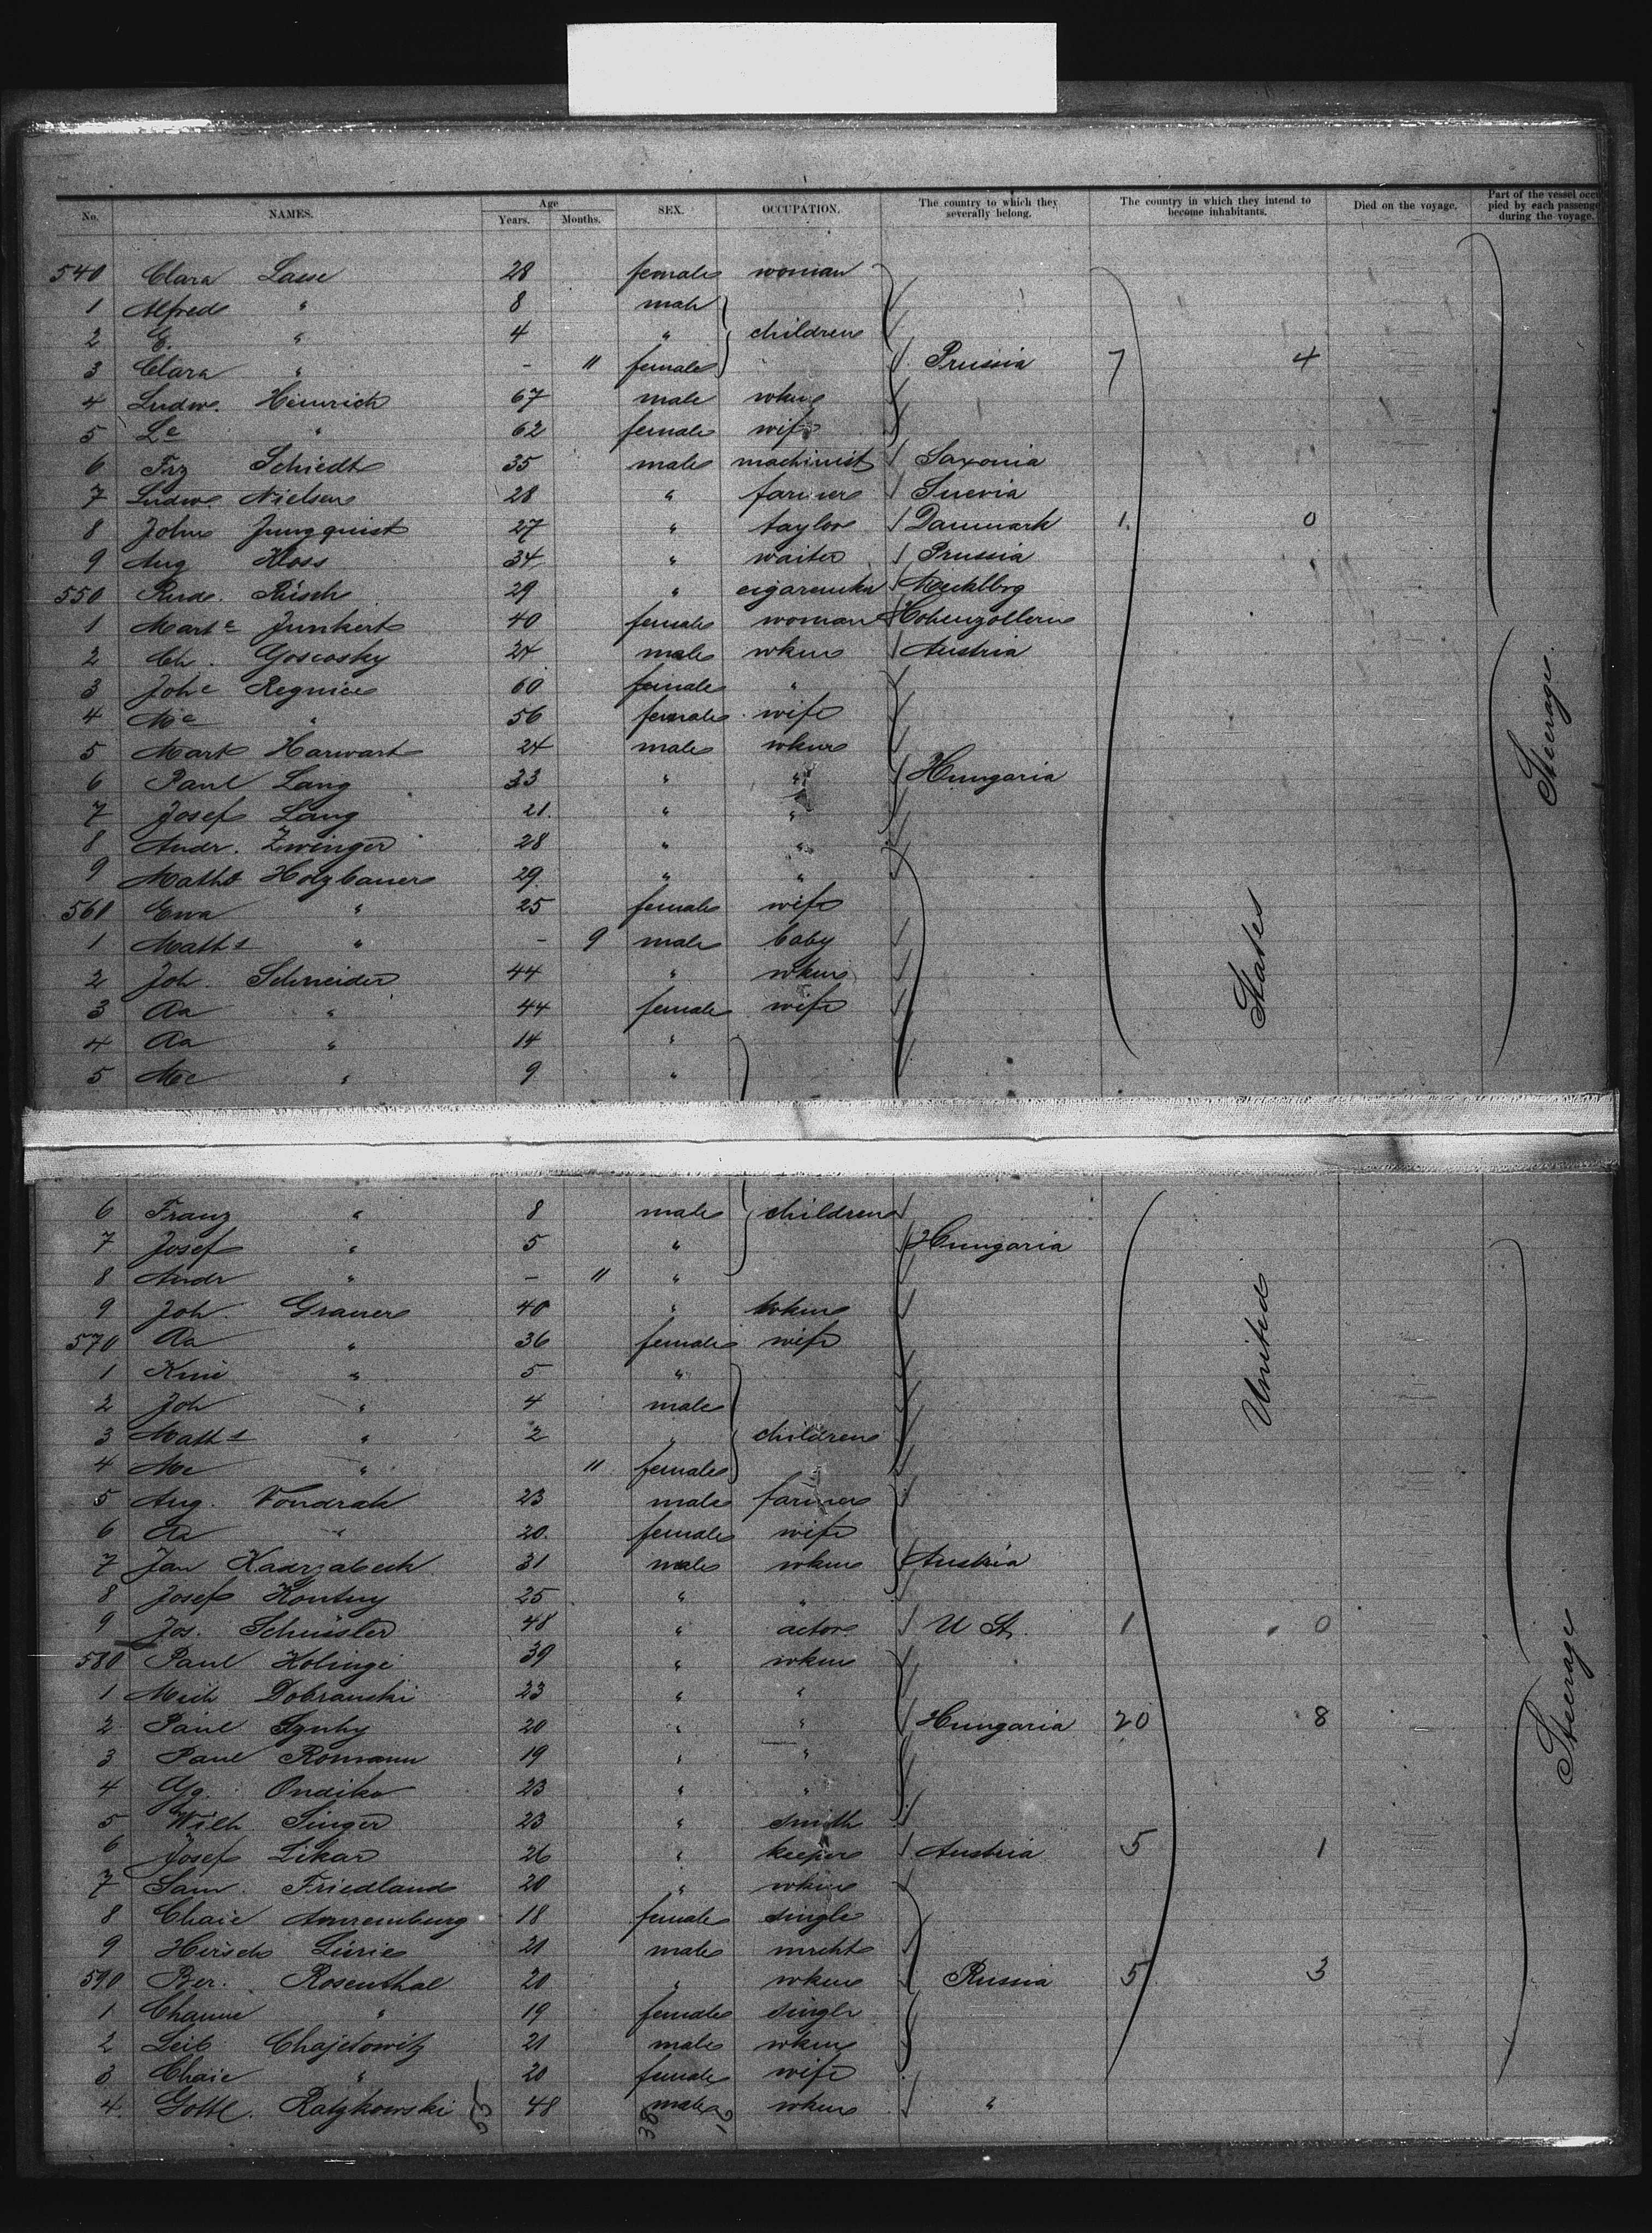 No. NAMES. Age Years. Months. SEX. OCCUPATION. The country to which they severally belong. The country in which they intend to become inhabitants. Died on the voyage. Part of the vessel occupied by each passenger during the voyage.
540 Clara Lasse 28 female woman
1 Alfred " 8 male
2 E. " 4 " children
3 Clara " - 11 female Prussia 7 4
4 Ludw. Heinrich 67 male wkm
5 Le " 62 female wife
6 Frz Schiedt 35 male machinist Saxonia
7 Ludw. Nielsen 28 " farmer Suevia
8 John Jungquist 27 " taylor Danmark 1. 0
9 Aug Kloss 34 " waiter Prussia
550 Rud. Rüsch 29 " cigaremkr Mecklbrg
1 Marte Junkert 40 female woman Hohenzollern
2 Ch. Goscosky 24 male wkm Austria
3 Johe Regnice 60 female "
4 Me " 56 female wife
5 Mark Harwart 24 male wkm
6 Paul Lang 33 " " Hungaria
7 Josef Lang 21. " "
8 Andr. Zwinger 28 " "
9 Maths Holzbauer 29 " "
560 Ewa " 25 female wife
1 Maths " - 9 male baby
2 Joh. Schneider 44 " wkm
3 Aa " 44 female wife
4 Aa " 14 "
5 Me " 9 "
States
Steerage.
6 Franz " 8 male children
7 Josef " 5 " Hungaria
8 Andr " - 11 "
9 Joh. Grauer 40 " wkm
570 Aa " 36 female wife
1 " 5 "
2 Joh " 4 male
3 Maths " 2 " children
4 Me " 11 female
5 Aug. Vondrak 23 male farmer
6 Aa " 20. female wife
7 Jan Kaarzabeck 31 male wkm Austria
8 Josef Kontny 25 " "
9 Jos. Schüssler 48 " actor U St. 1 0
580 Paul Holingi 39 " wkm
1 Mich Dobranski 23 " "
2 Paul 20 " " Hungaria 20 8
3 Paul Romann 19 " "
4 Gg. Ondiko 23 " "
5 Wilh. Singer 23 " smith
6 Josef Likar 26 " keeper Austria 5 1
7 Sam. Friedland 20 " wkm
8 Chaie 18 female single
9 Hirsch Lurie 21 male mrcht
590 Ber. Rosenthal 20 " wkm Russia 5 3
1 Channe " 19 female single
2 Leib Chajetowitz 21 male wkm
3 Chaie " 20 female wife
4. Gottl. Ratzkowski 48 male wkm "
United
Steerage